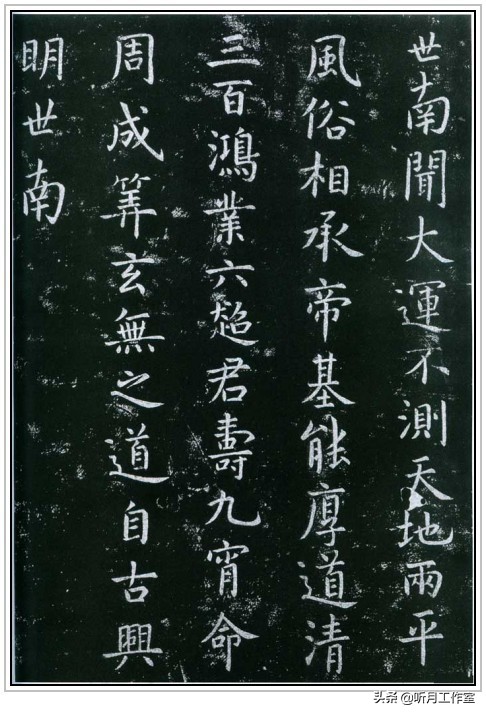 世南聞大運不測天地兩平
風俗相承帝基能厚道清
三百鴻業六超君壽九霄命
周成筭玄無之道自古興
明世南
头条 @听月工作室